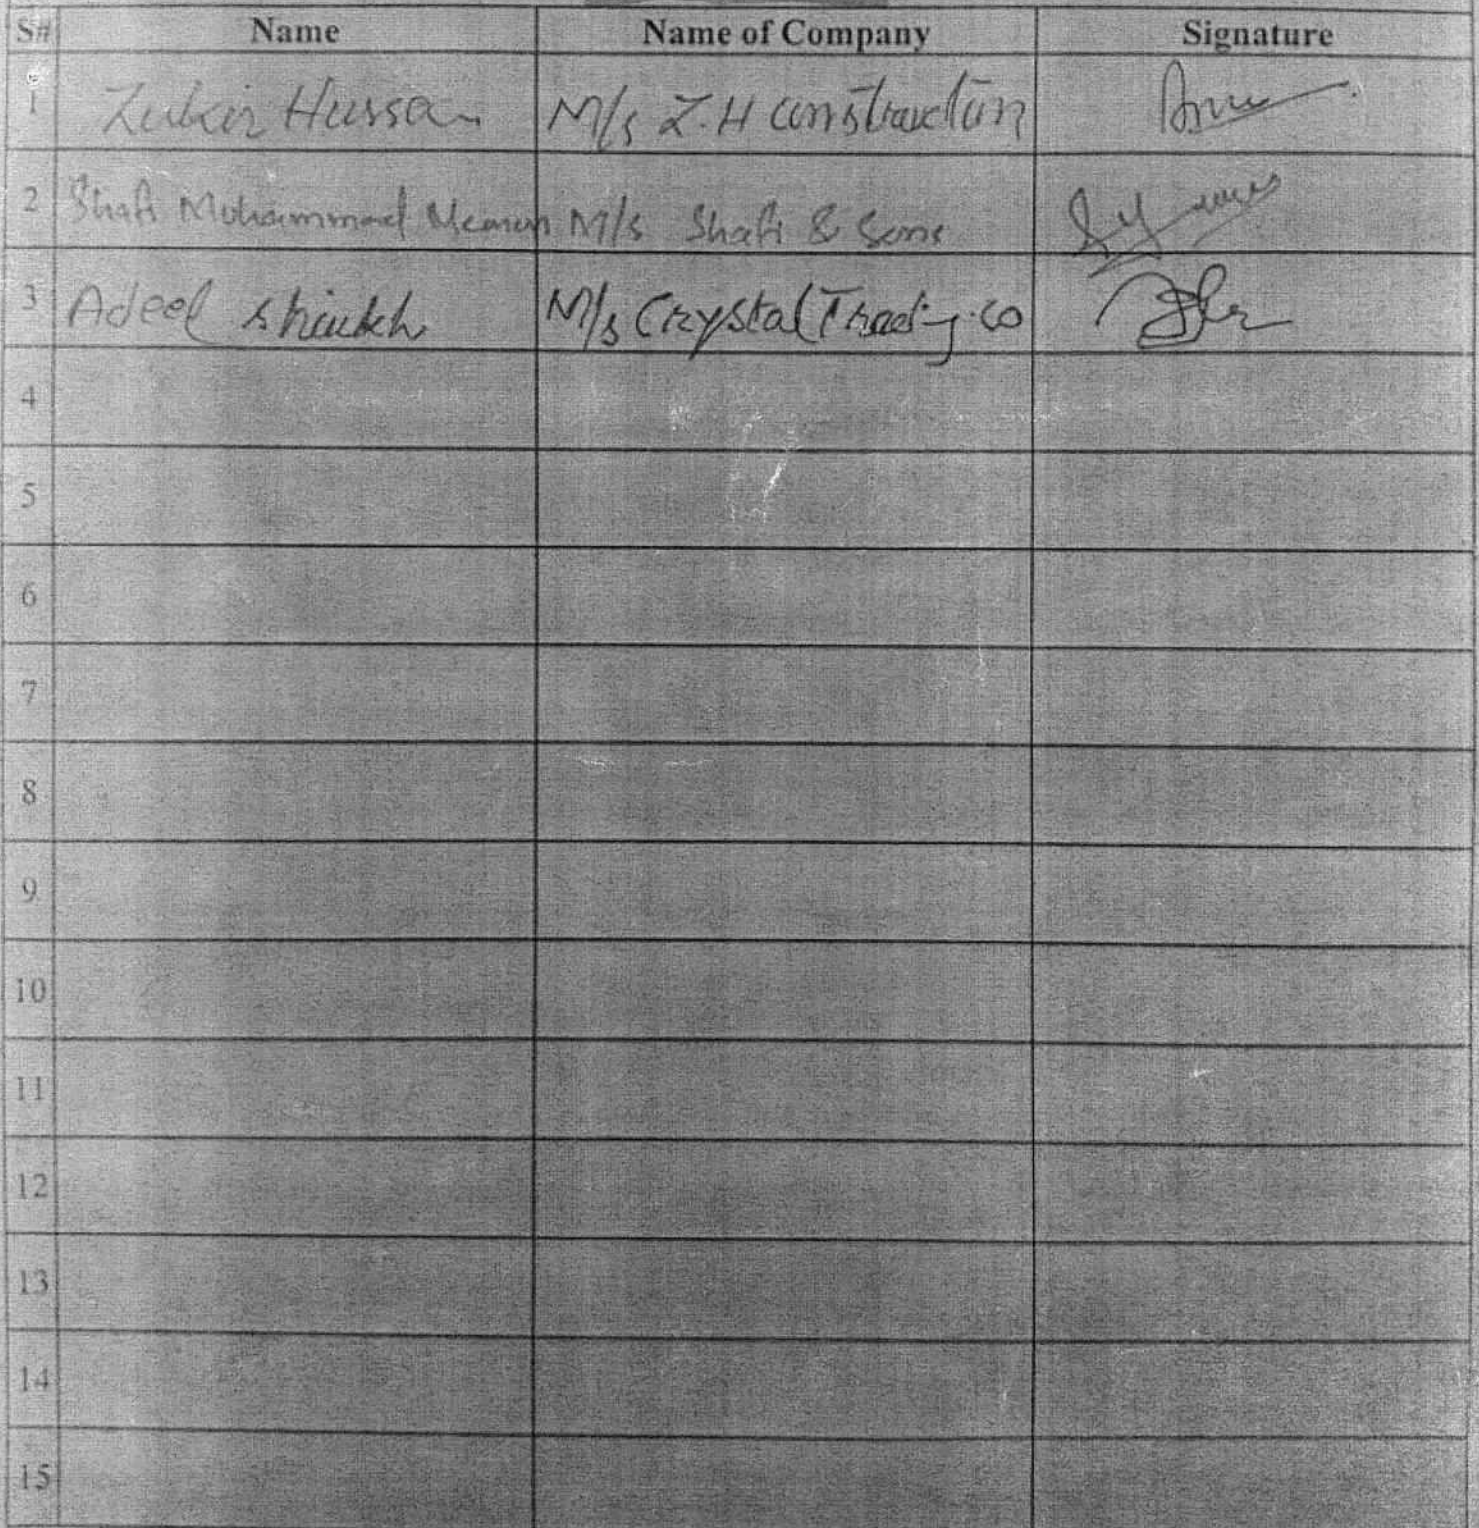 S# Name Name of Company Signature
1 Zakir Hussain M/s Z.H Construction
2 Shafi Muhammad Memon M/s Shafi & Sons
3 Adeel Shaikh M/s Crystal Trading.co
4
5
6
7
8
9
10
11
12
13
14
15